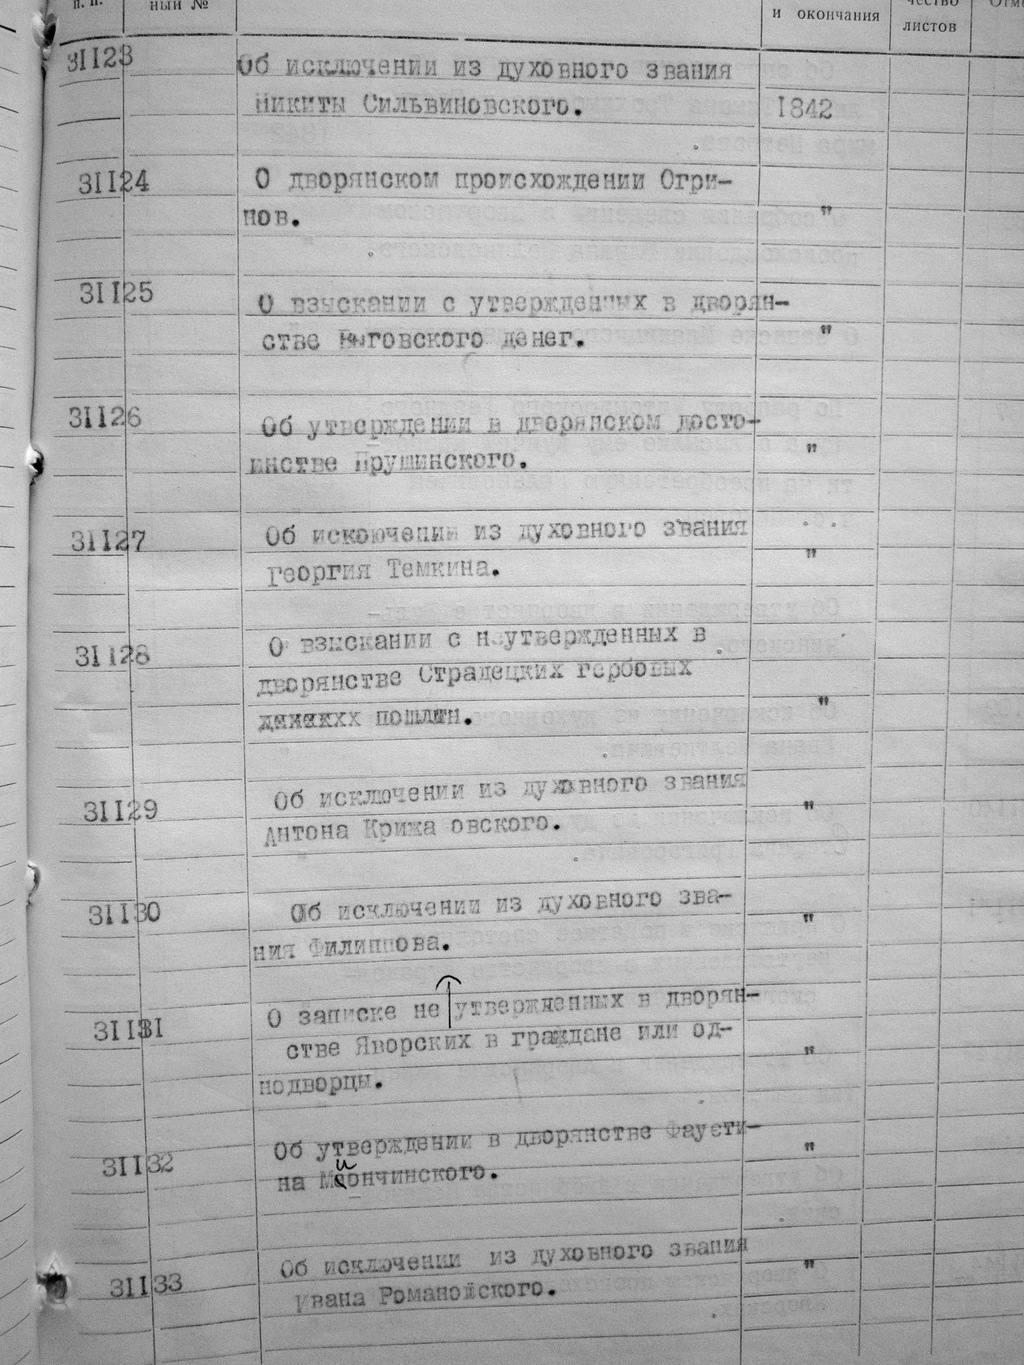 п. п.
ный №
и окончания
чество
листов
31123
Об исключении из духовного звания
Никиты Сильвиновского.
1842
31124
О дворянском происхождении Огри-
нов.
"
31125
О взыскании с утвержденных в дворян-
стве Выговского денег.
"
31126
Об утверждении в дворянском досто-
инстве Прушинского.
"
31127
Об искоючении из духовного звания
Георгия Темкина.
"
31128
О взыскании с неутвержденных в
дворянстве Страдецких гербовых
пошлин.
"
31129
Об исключении из духовного звания
Антона Крижа овского.
"
31130
Об исключении из духовного зва-
ния Филиппова.
"
31131
О записке не утвержденных в дворян-
стве Яворских в граждане или од-
нодворцы.
"
31132
Об утверждении в дворянстве Фаусти-
на
"
31133
Об исключении из духовного звания
Ивана
"